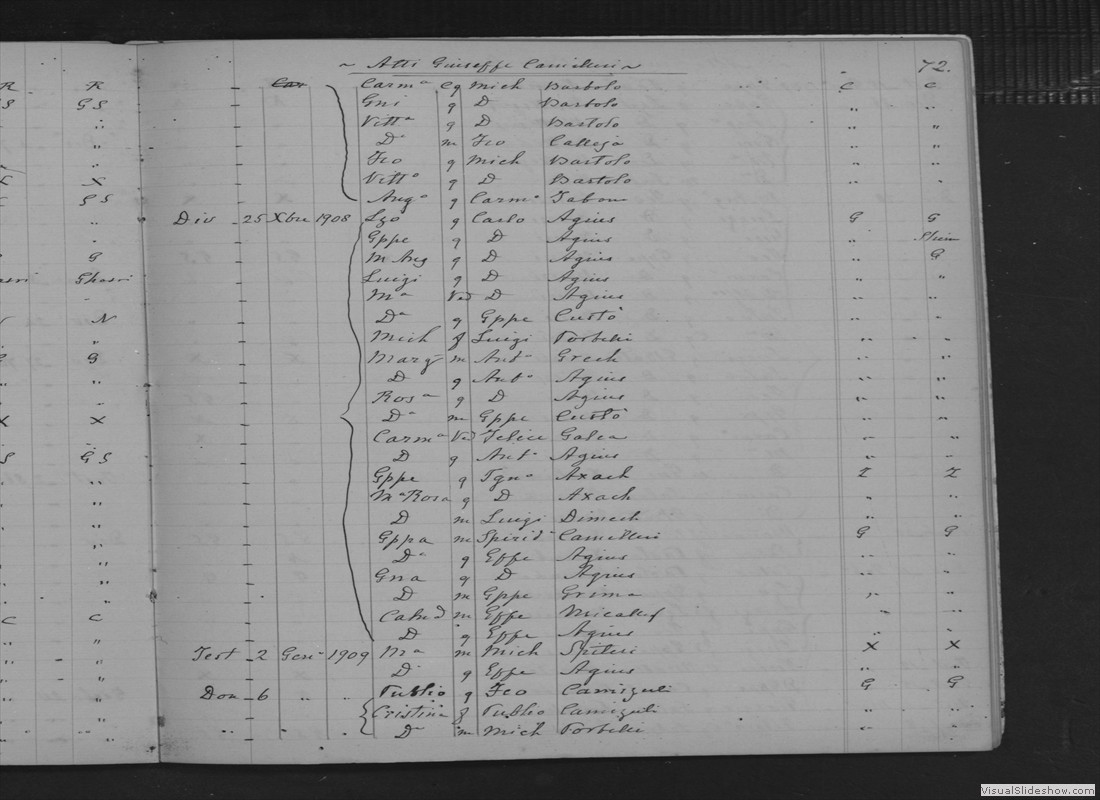 ~ Atti Giuseppe Camilleri ~ 72.
R R Car Carmª Cq Mich Bartolo C C
S GS Gni q D Bartolo " "
" Vittª q D Bartolo " "
" Dª m Fco Calleja " "
Fco q Mich Bartolo " "
X X Vittº q D Bartolo " "
GS Angº q Carmº Tabone
Div - 25 Xbre 1908 Lzo q Carlo Agius G G
Gppe q D Agius "
G M Ang q D Agius G
Ghasri Luigi q D Agius "
Mª Ved D Agius " "
N Dª q Gppe Custò " "
Mich f Luigi Portelli " "
G G Marg m Antº Grech " "
" " D q Antº Agius " "
Rosª q D Agius " "
X X Dª m Gppe Custò " "
Carmª Ved Felice Galea " "
S GS D q Antº Agius " "
" Gppe q Ignº Axach Z Z
" " Mª Rosa q D Axach " "
" " D m Luigi Dimech " "
" " Gppa m Spirid Camilleri G G
" " Dª q Gppe Agius " "
" " Gna q D Agius " "
" " D m Gppe Grima " "
C C Catnª m Gppe Micallef " "
" " D q Gppe Agius " "
" " Test - 2 Genº 1909 Mª m Mich Spiteri X X
" " D q Gppe Agius " "
" " Don - 6 " " Publio q Fco Camiguli G G
" " Cristina f Publio Camiguli " "
" " " " " Dª m Mich Portelli " "